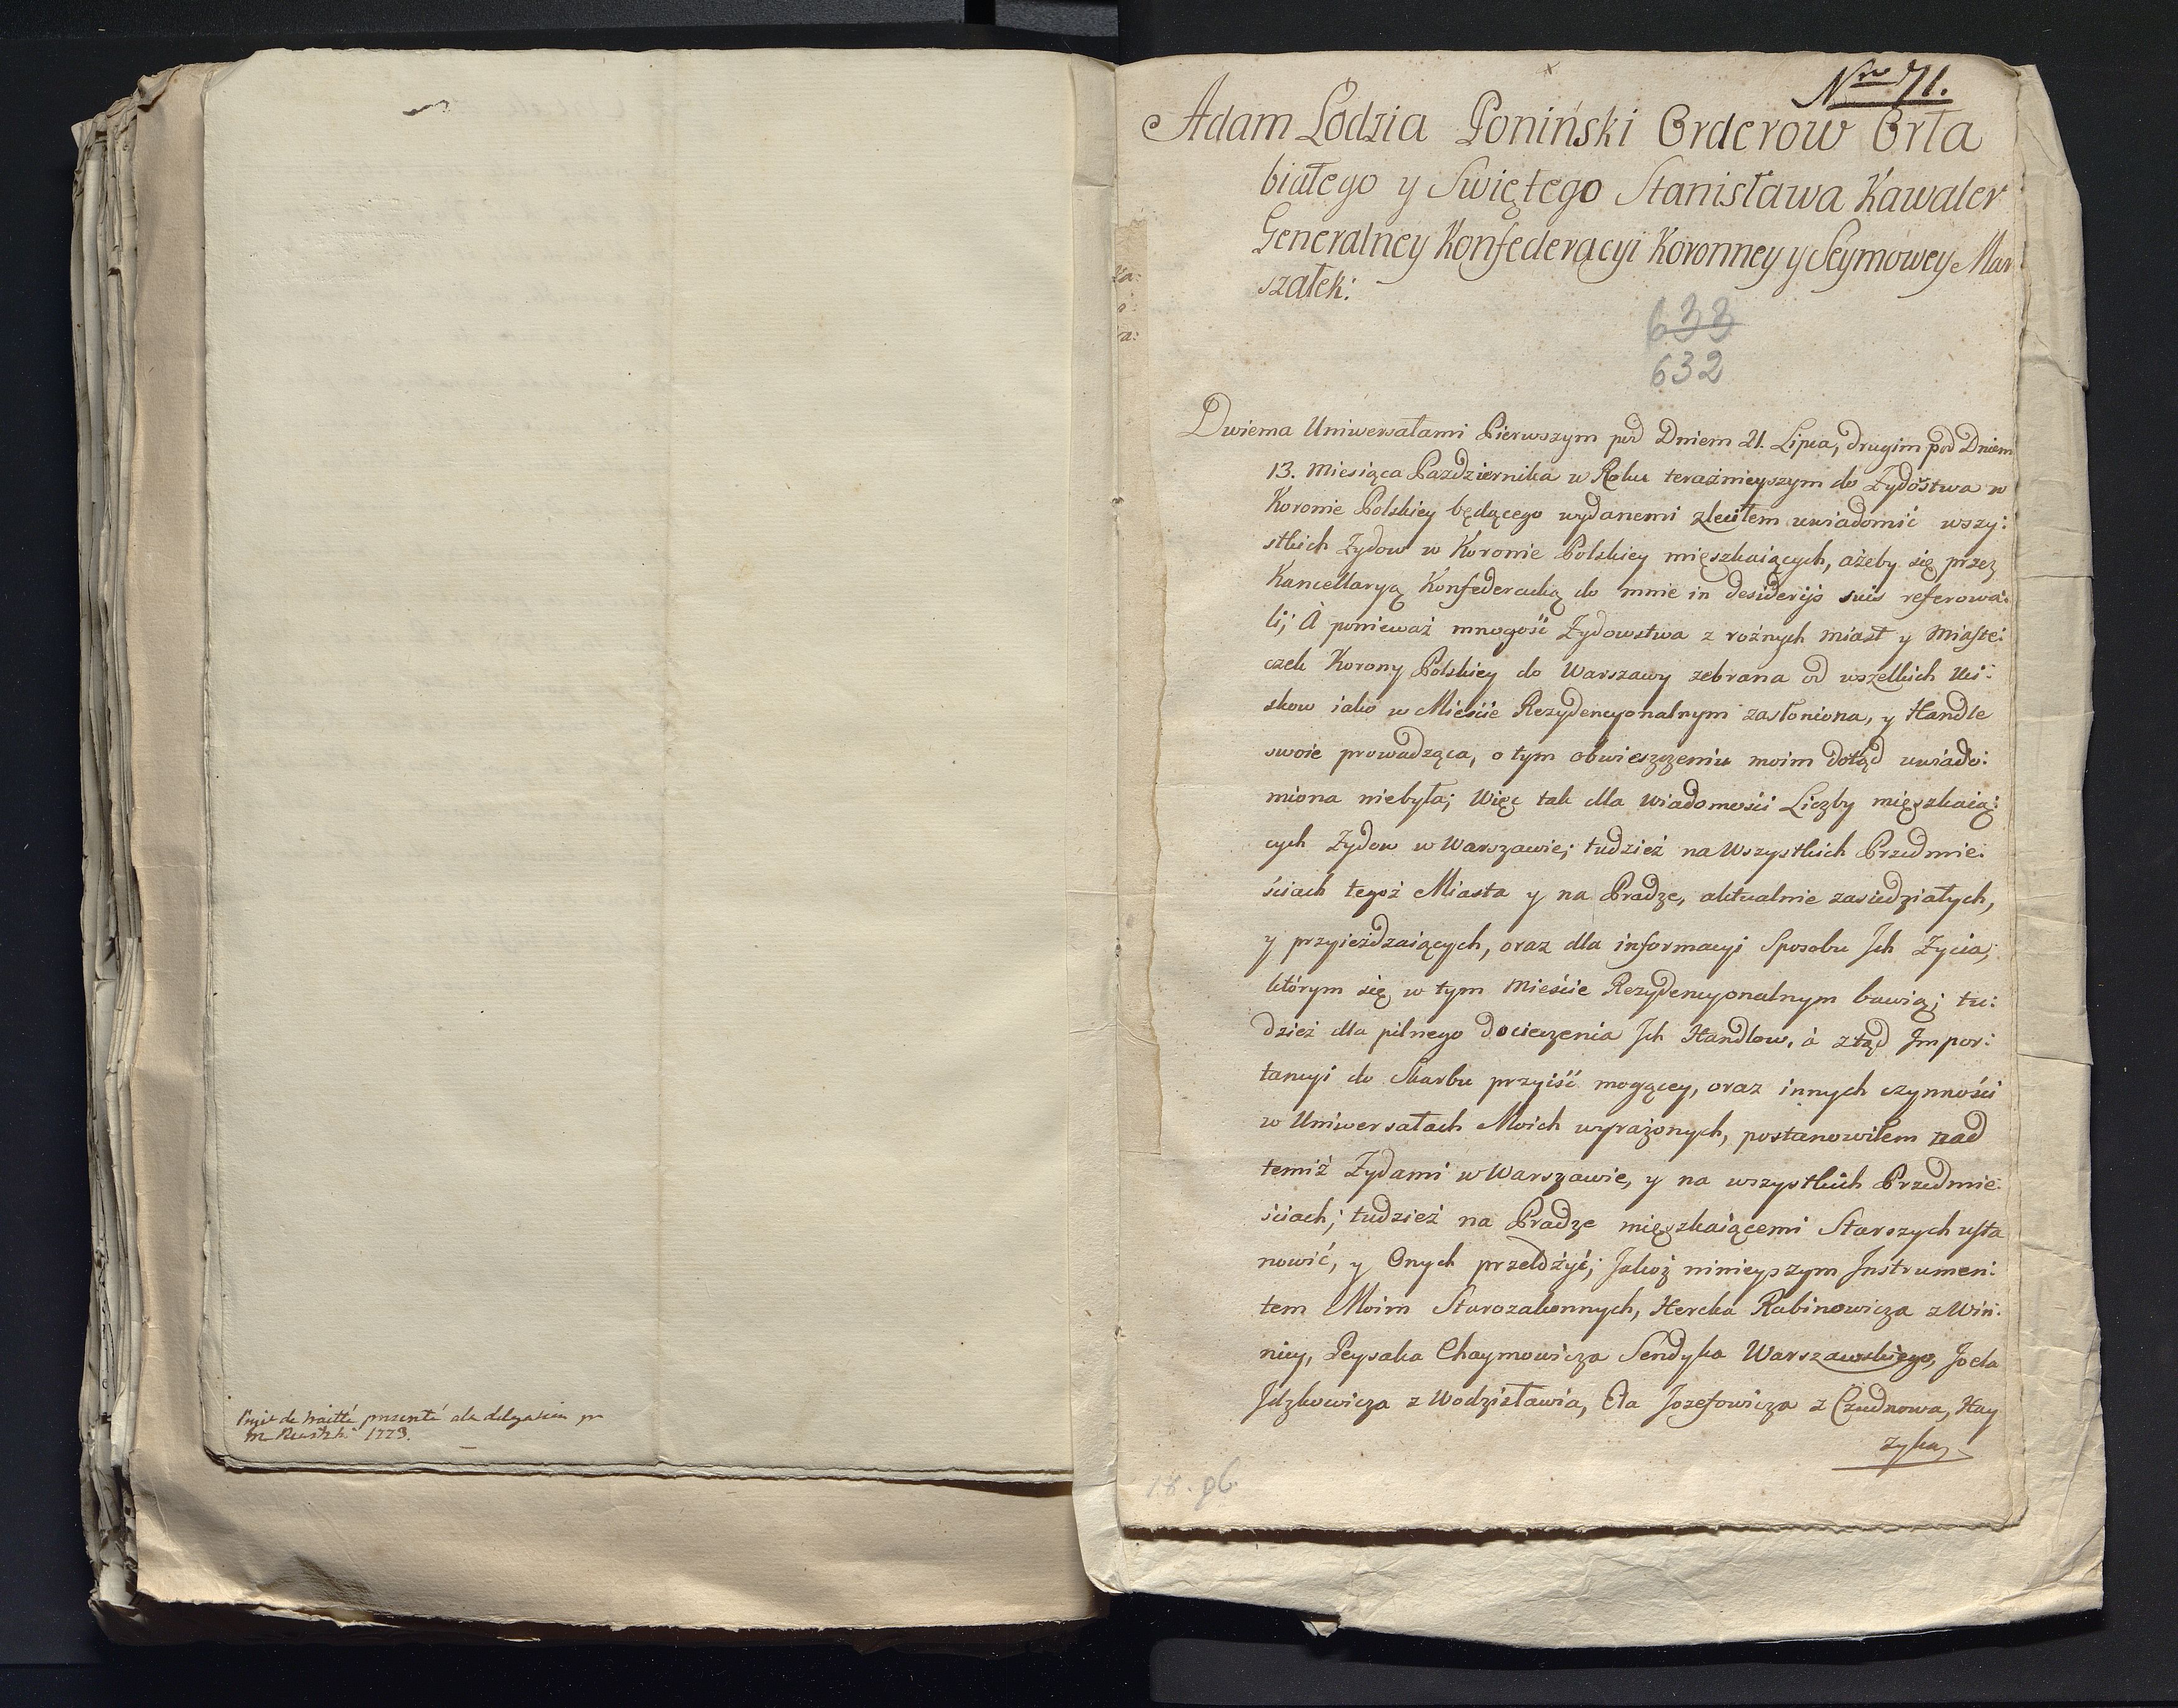 Projet de traitté presenté a la delegation par
1773.
Nro 71.
Adam Łodzia Poniński Orderow Orła
białego y Swiętego Stanisława Kawaler
Generalney Konfederacyi Koronney y Seymowey Mar
szałek:
633
632
Dwiema Uniwersałami Pierwszym pod Dniem 21. Lipca, drugim pod Dniem
13. Miesiąca Pazdziernika w Roku teraźnieyszym do Żydostwa w
Koronie Polskiey będącego wydanemi zleciłem uwiadomić wszy:
stkich Żydow w Koronie Polskiey mięszkaiących, ażeby się przez
Kancellaryą Konfederacką do mnie in desiderijs suis referowa:
li; A ponieważ mnogość Żydowstwa z rożnych miast y Miaste:
czek Korony Polskiey do Warszawy zebrana od wszelkich Uci:
skow iako w Mieście Rezydencyonalnym zasłoniona, y Handle
swoie prowadząca, o tym obwieszczeniu moim dotąd uwiado:
miona niebyła; Więc tak dla Wiadomości Liczby mięszkaią:
cych Żydow w Warszawie; tudzież na Wszystkich Przedmie:
ściach tegoż Miasta y na Pradze, aktualnie zasiedziałych,
y przyieżdzaiących, oraz dla informacyi Sposobu Ich Życia,
którym się w tym Mieście Rezydencyonalnym bawią; tu:
dzież dla pilnego docieczenia Ich Handlow, à ztąd Impor:
tancyi do Skarbu przyiść mogącey, oraz innych czynności
w Uniwersałach Moich wyrażonych, postanowiłem nad
temiż Żydami w Warszawie, y na wszystkich Przedmie:
ściach; tudzież na Pradze mięszkaiącemi Starszych usta
nowić, y Onych przełożyć; Jakoż ninieyszym Instrumen:
tem Moim Starozakonnych, Hercka Rabinowicza z Win:
nicy, Peysaka Chaymowicza Sendyka Warszawskiego, Joela
Jdzkowicza z Wodzisławia, Ela Jozefowicza z Czudnowa, Hay
zyka,